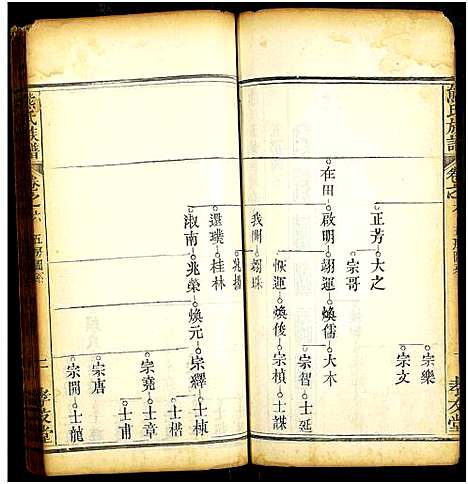 熊氏族譜
卷之六
五房圖
孝友堂
正芳
大之
宗樂
宗文
在田
啟明
翊運
煥儒
大木
宗哥
宗智
士廷
恢運
煥俊
宗楨
士謀
我開
翊珠
兆揚
還璞
桂林
淑南
兆榮
煥元
宗繹
士楨
士楷
宗堯
士章
士甫
宗唐
宗開
士龍
熊氏族譜
卷之六
五房圖
孝友堂